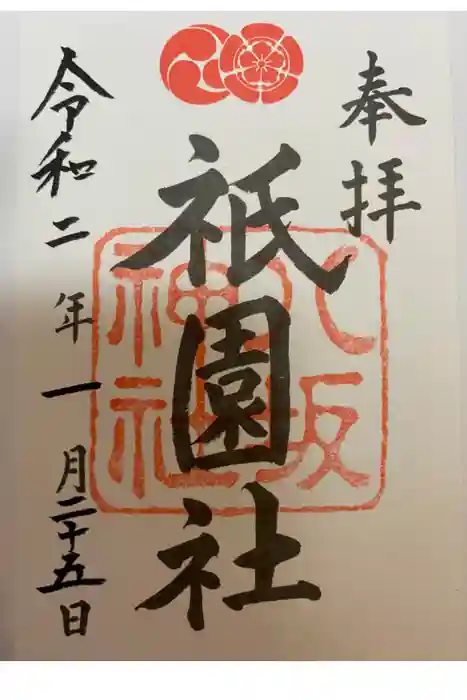 奉拝
祇園社
八坂
神社
令和二年一月二十五日